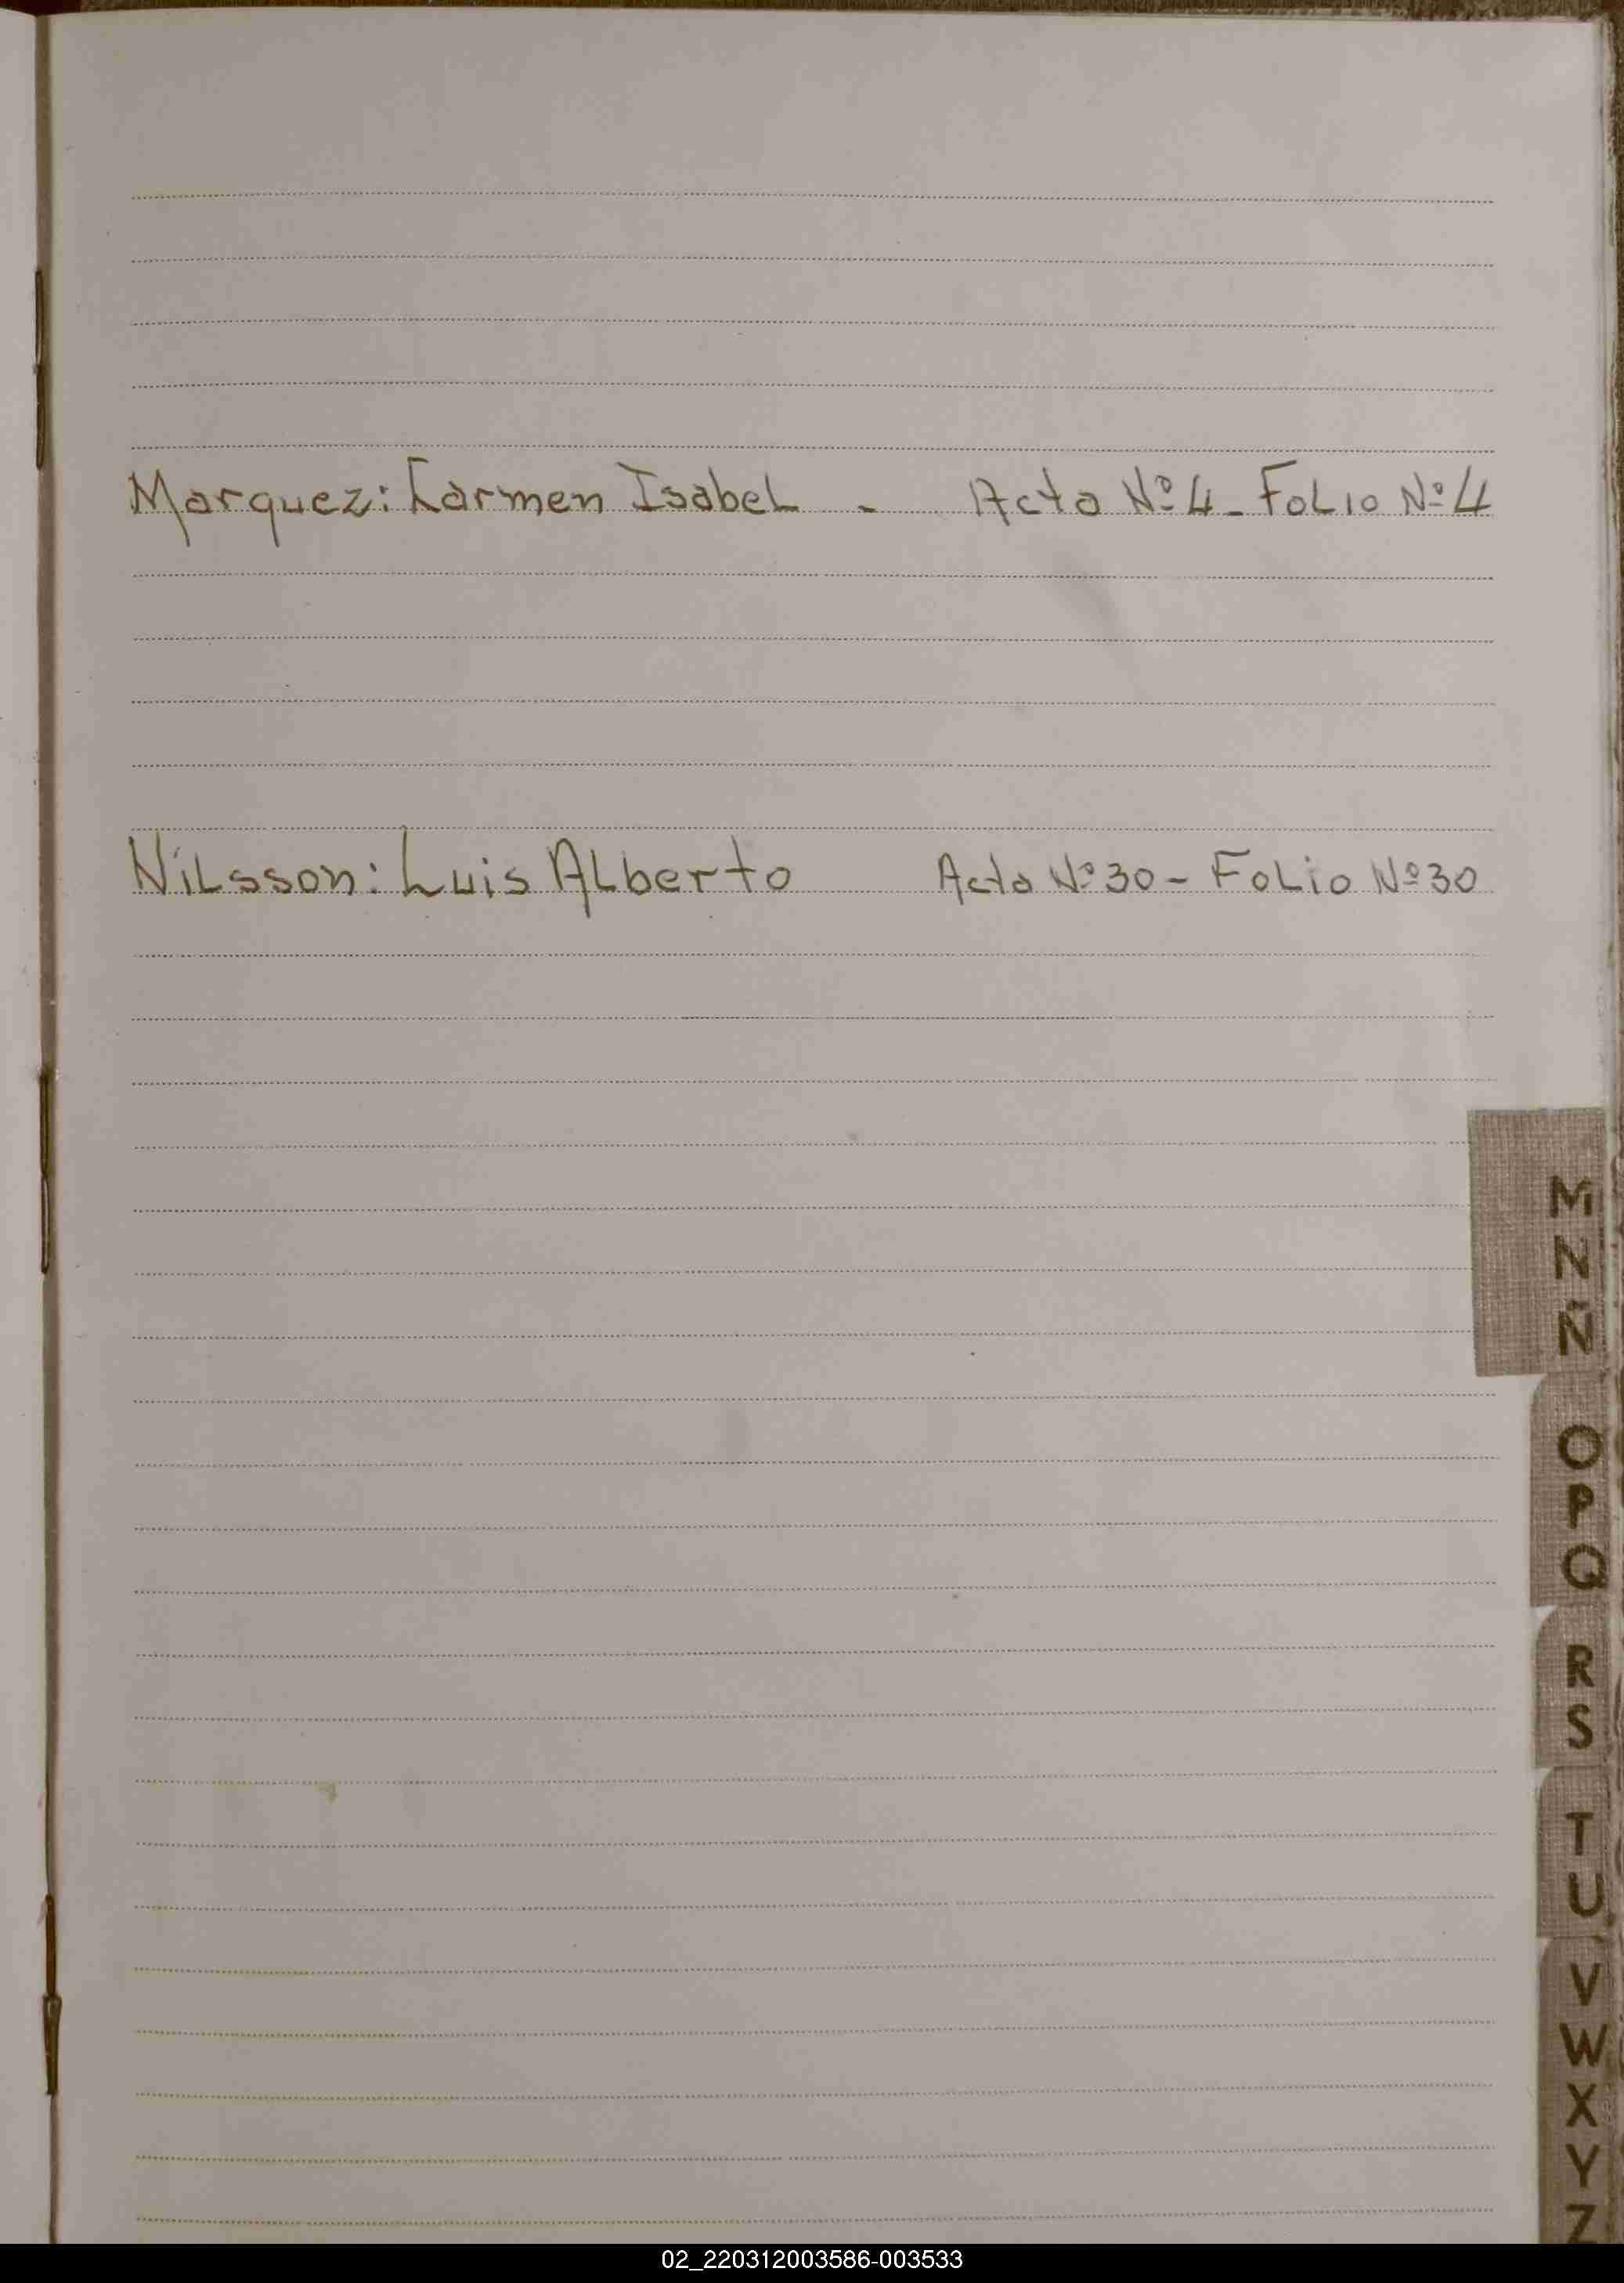 Marquez: Carmen Isabel - Acta Nº 4 - Folio Nº 4
Nilsson: Luis Alberto Acta Nº 30 - Folio Nº 30
M
N
Ñ
O
P
Q
R
S
T
U
V
W
X
Y
Z
02_220312003586-003533